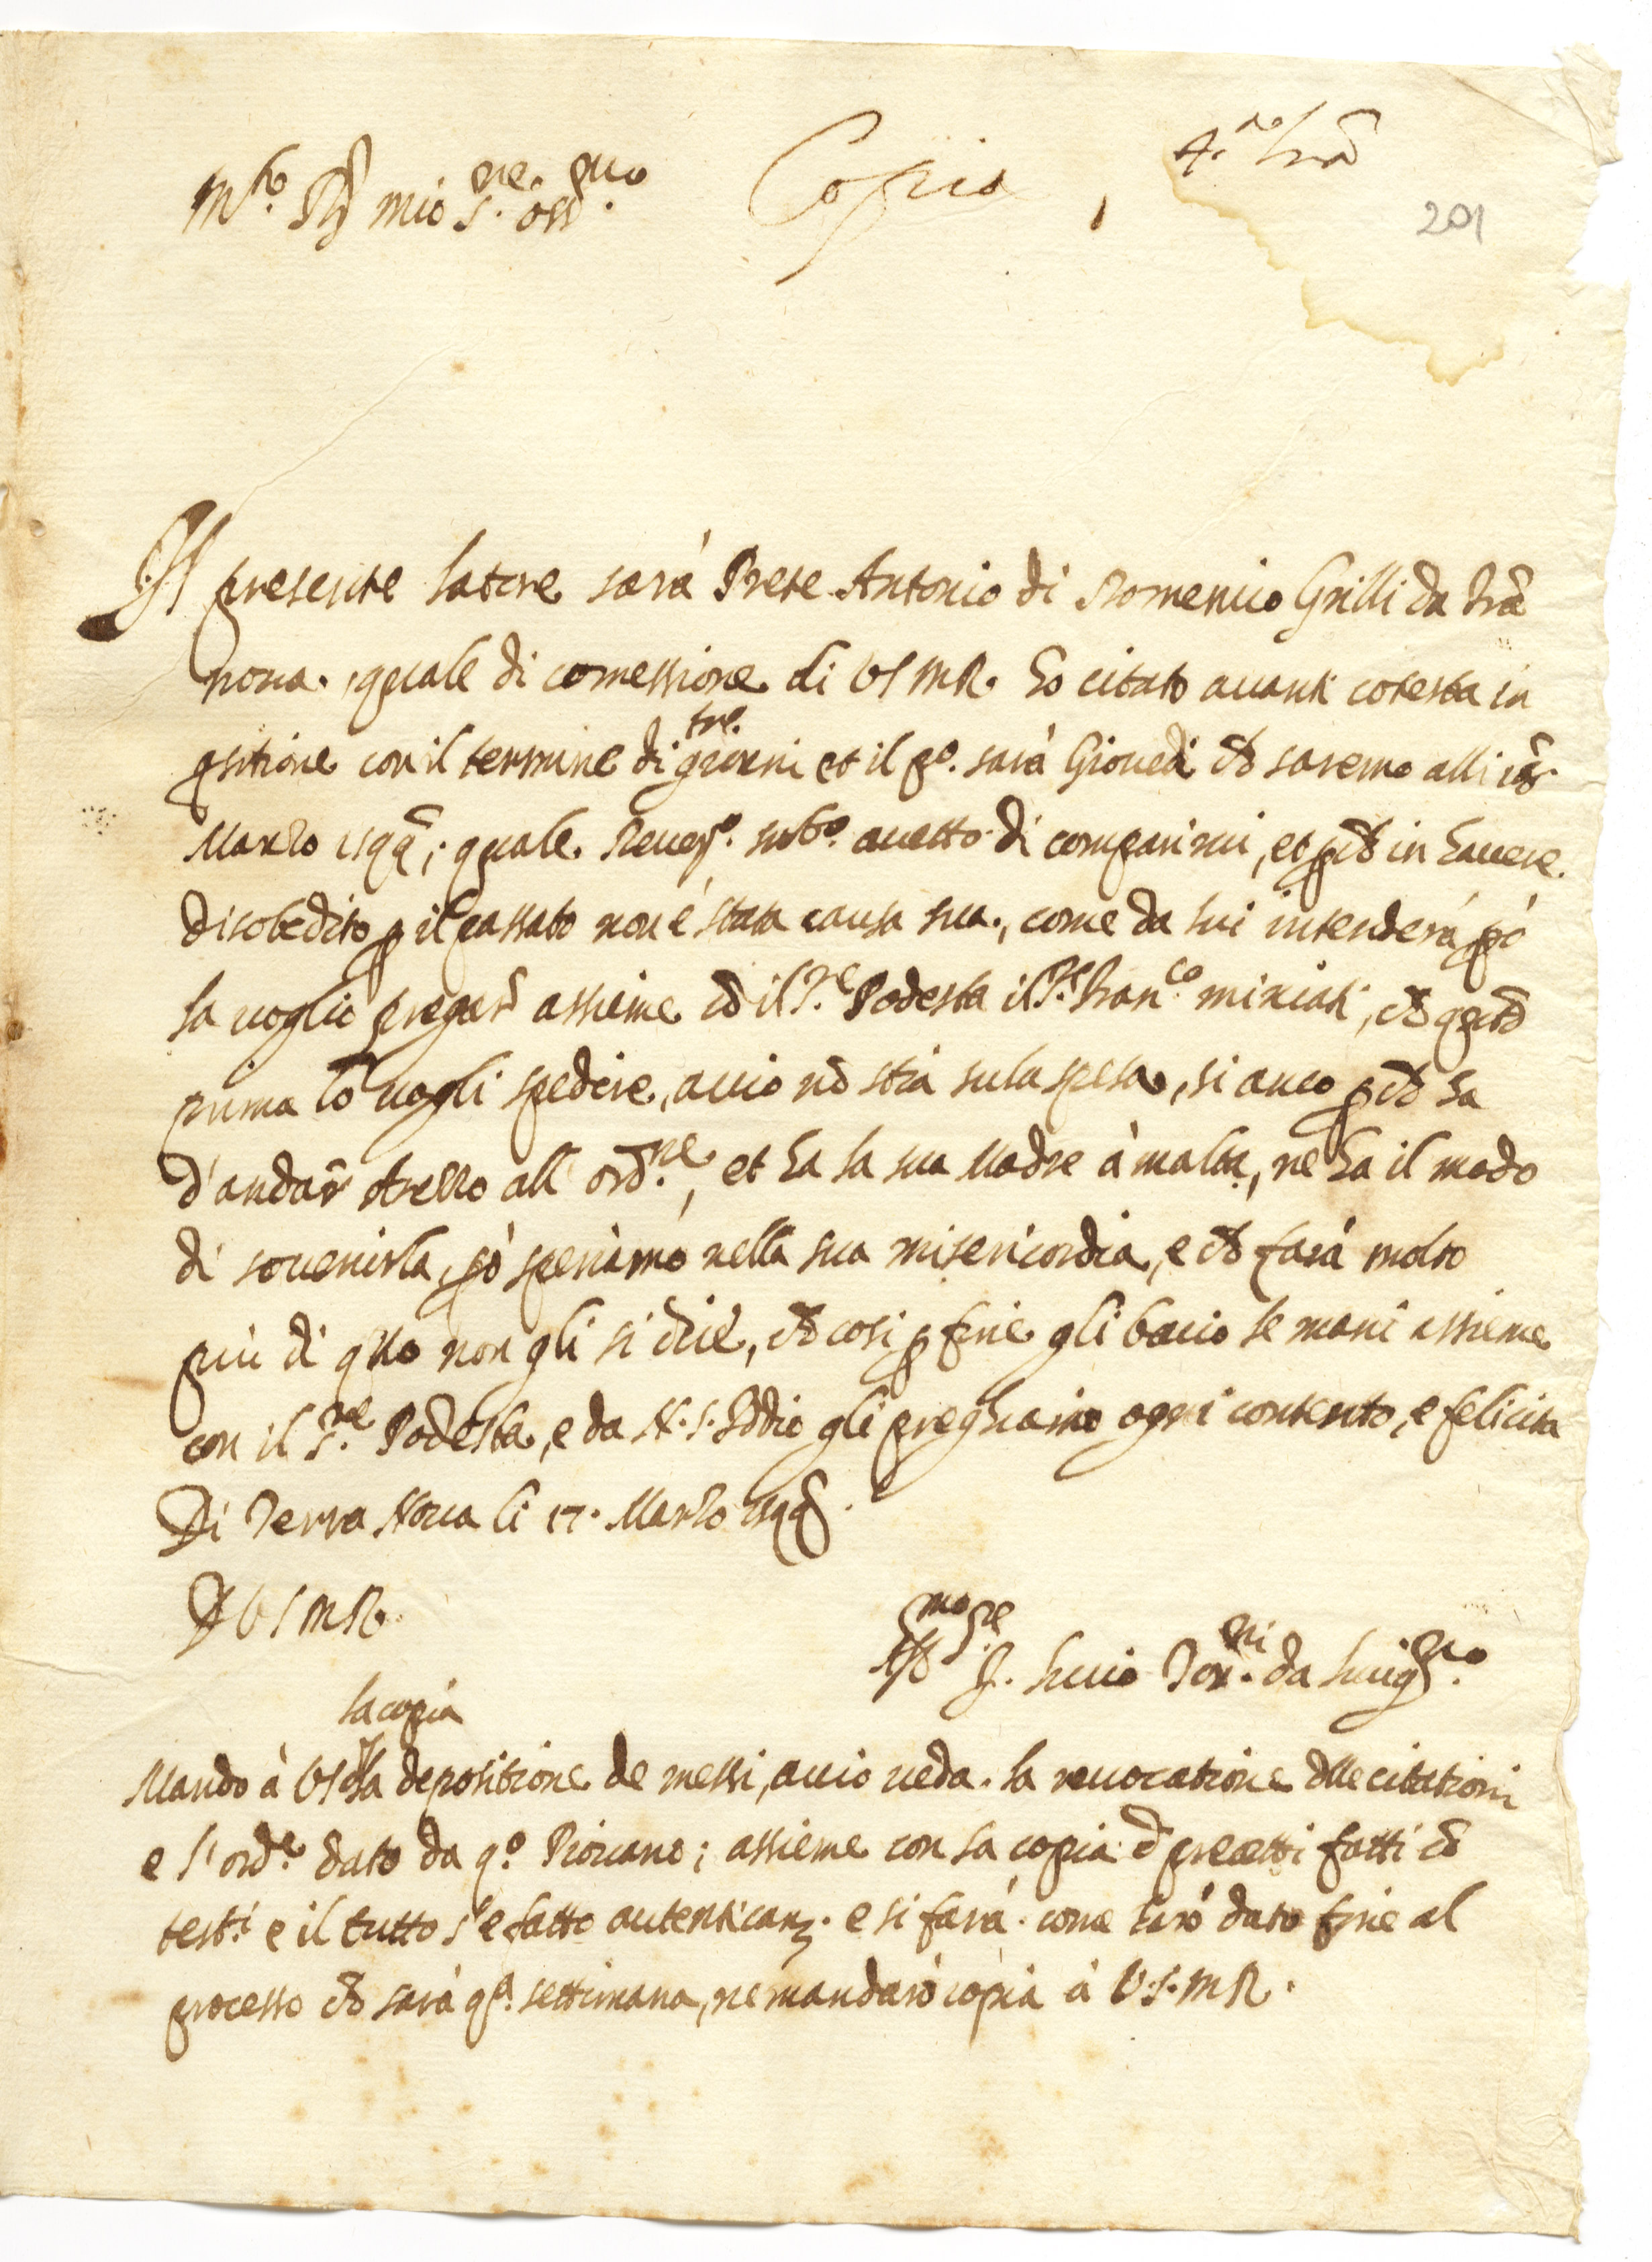 Copia
4.ª lrã
201
M.to R.do mio S.re oss.mo
Il presente latore sarà Prete Antonio di Domenico Grilli da Trã
nova, quale di comessione di VSMR. ho citato avanti cotesta in
qsitione con il termine di tre giorni et il po. sarà Giovedi ch̃ saremo alli 18.
Marzo 1599; quale subo. di comparirvi, et pch̃ in havere
disobedito p il passato non è stata causa sua, come da lui intenderà pò
la voglio pregar̃ assieme cõ il S.re Podesta il S.r Fran.co miniati, ch̃ quãto
prima lo vogli spedire, accio nõ stia su la spesa, si anco pch̃ ha
d'andar̃ Arezzo all' ord.ne, et ha la sua Madre à malta, ne ha il modo
di sovenirla, pò speriamo nella sua misericordia, e ch̃ farà molto
più di qllo non gli si dice, ch̃ cosi p fine gli bacio le mani assieme
con il S.re Podesta, e da N. S. Iddio gli preghiamo ogni contento, e felicita
Di Terra Nova li 17. Marzo 1599.
D VSMR.
Aff.mo S.re
F. Lucio da Lucig.no
Mando à VS la copia dlla depositione de messi, accio veda. la revocatione dlle citationi
e l'ord.e dato da q.o Piovano; assieme con la copia d precetti fatti cõ
test.i e il tutto s'è fatto autenticar. e si farà. come harò dato fine al
processo ch̃ sarà q.a settimana, ne mandarò copia à V.S.MR.